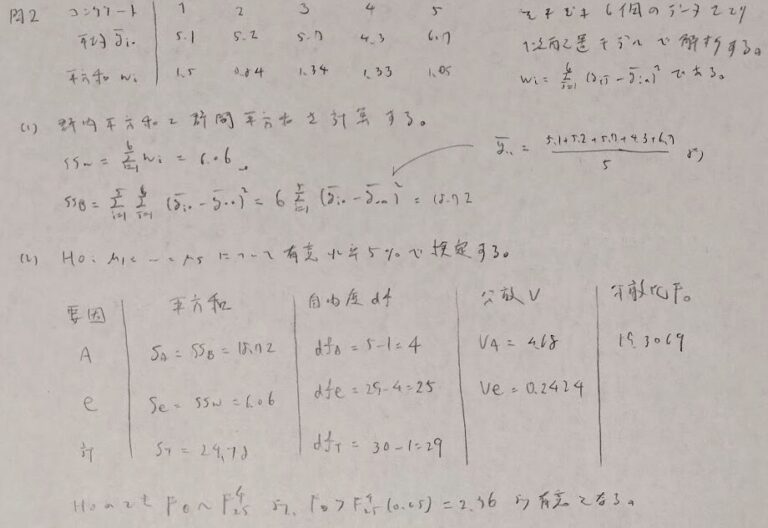 問2 コンクリート 1 2 3 4 5
平均 ȳi. 5.1 5.2 5.7 4.3 6.7
平方和 wi 1.5 0.84 1.34 1.33 1.05
それぞれ6個のデータをとり
一次配置モデルで解析する。
wi = Σ(yij − ȳi.)² である。
(1) 群内平方和と群間平方和を計算する。
SSw = Σ wi = 6.06。
ȳ.. = (5.1+5.2+5.7+4.3+6.7)/5 より
SSB = Σ Σ (ȳi. − ȳ..)² = 6 Σ (ȳi. − ȳ..)² = 18.72
(2) H0: μ1 = … = μ5 について有意水準5%で検定する。
要因 平方和 自由度 df 分散 V 分散比 F0
A SA = SSB = 18.72 dfA = 5-1 = 4 VA = 4.68 19.3069
e Se = SSw = 6.06 dfe = 29-4 = 25 Ve = 0.2424
計 ST = 24.78 dfT = 30-1 = 29
H0のもと F0 ~ F⁴₂₅ より, F0 > F⁴₂₅(0.05) = 2.76 より有意となる。